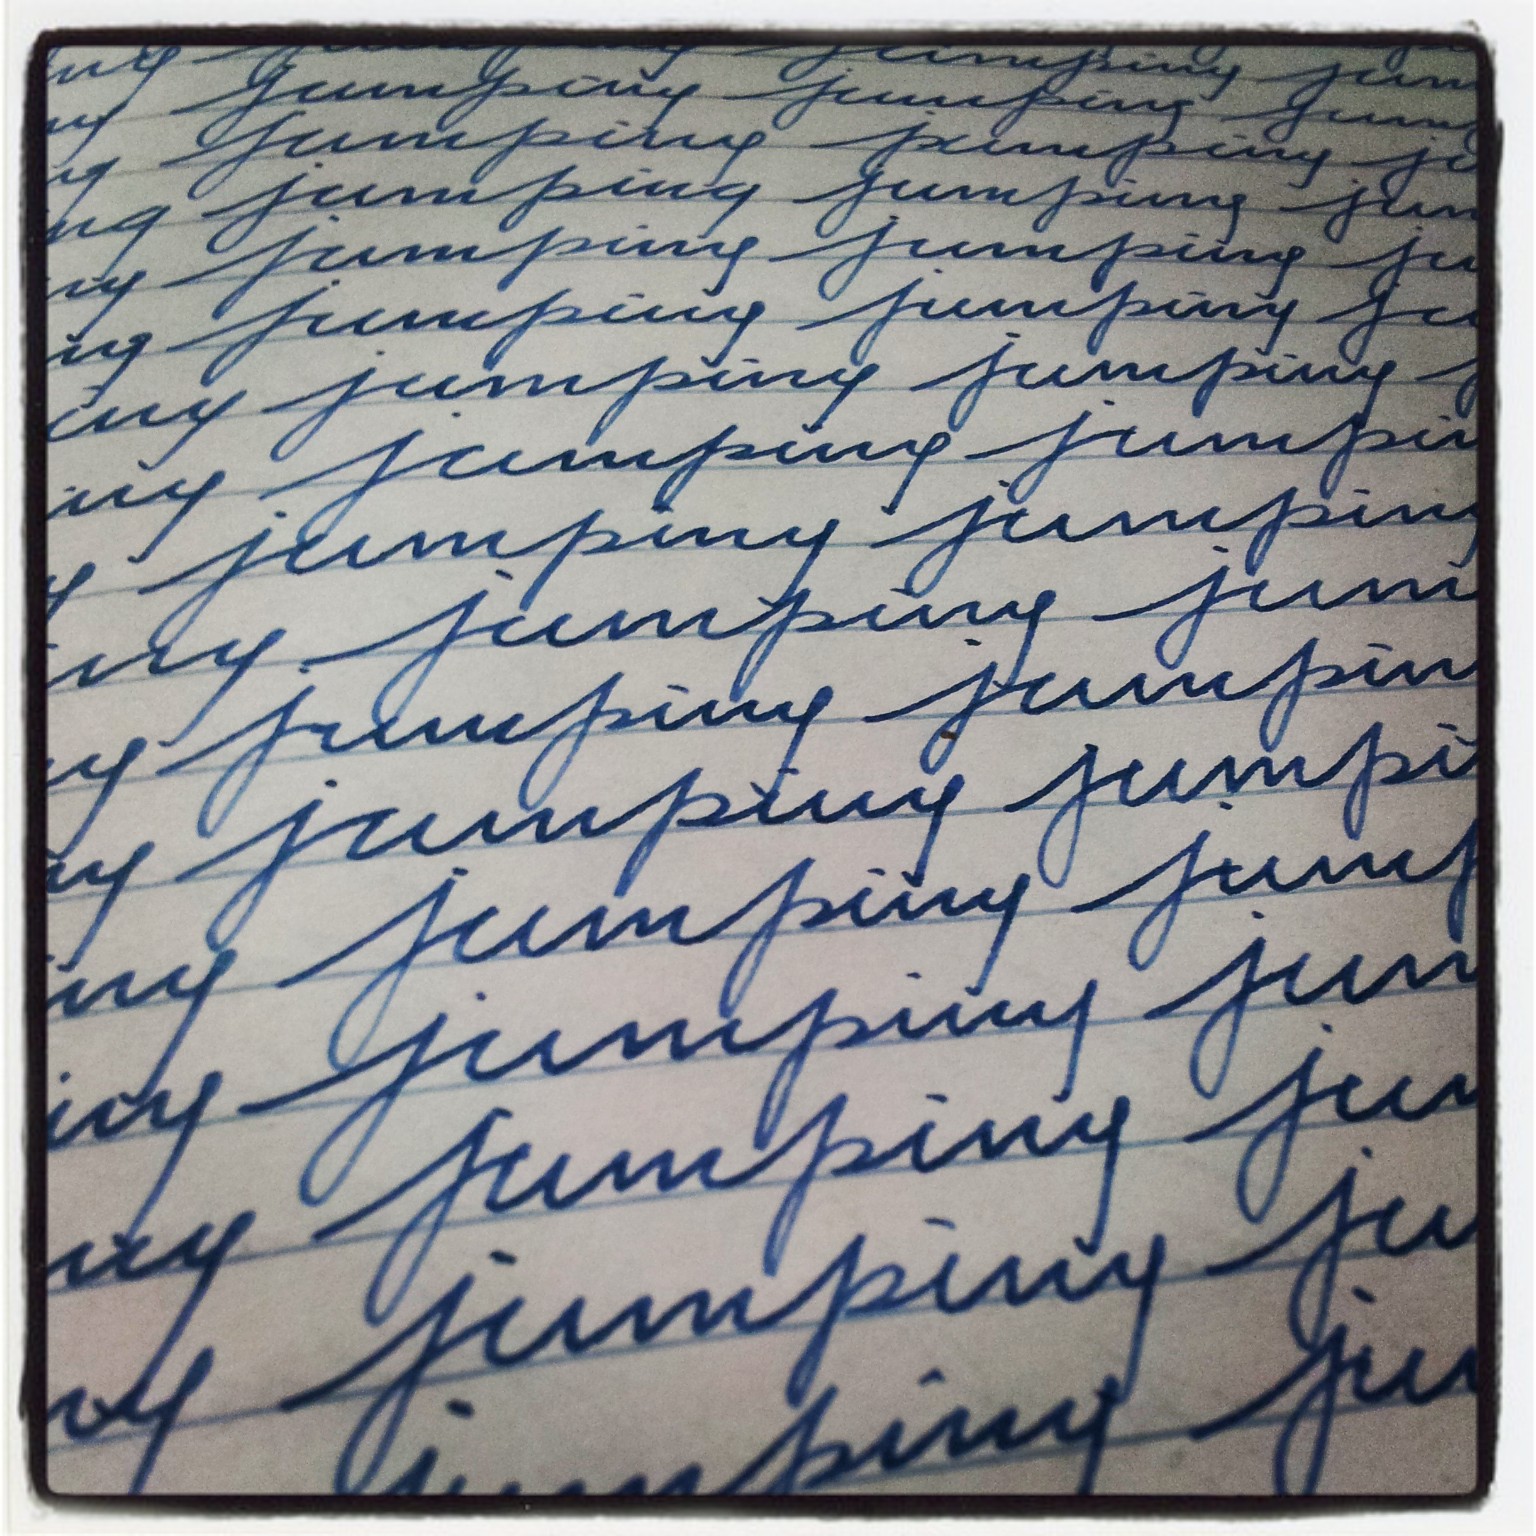 ing jumping jumping jum
ng jumping jumping jum
ng jumping jumping ju
ng jumping jumping jum
ng jumping jumping ju
ing jumping jumping ju
ing jumping jumping j
ing jumping jumpin
g jumping jumping
ing jumping jum
g jumping jumpin
ng jumping jumpi
ing jumping jump
ing jumping jum
ng jumping jum
ng jumping ju
jumping ju